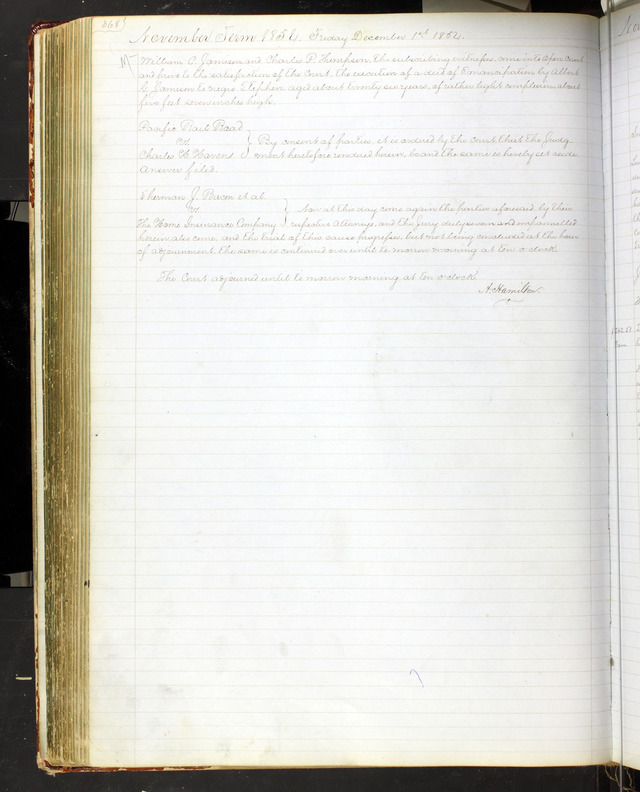 368
November Term 1854. Friday December 1st 1854.
William C. Jamison and Charles P. Thompson the subscribing witnesses come into Open Court
and prove to the satisfaction of the Court, the execution of a deed of Emancipation by Albert
G. Jamison to negro Stephen aged about twenty six years, of rather light complexion, about
five feet seven inches high.
Pacific Rail Road
vs } By consent of parties, it is ordered by the Court that the Judg-
Charles H. Havens } ment heretofore rendered herein be and the same is hereby set aside
answer filed.
Sherman J. Bacon et al
vs } Now at this day come again the parties aforesaid by their
The Home Insurance Company } respective attorneys, and the Jury duly sworn and empannelled
herein also come, and the trial of this cause progresses, but not being concluded at the hour
of adjournment the same is continued over until to morrow morning at ten o'clock
The Court adjourned until to morrow morning at ten o'clock
A. Hamilton